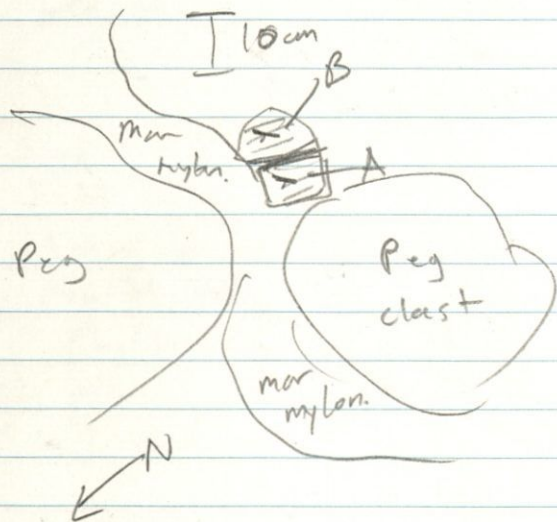 10 cm
B
mar
mylon.
A
Peg
Peg
clast
mar
mylon.
N